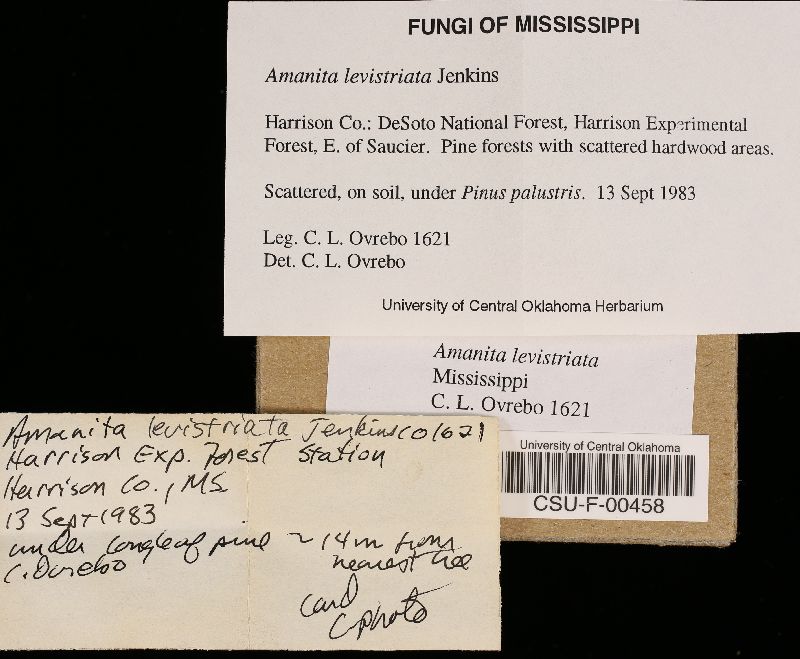 FUNGI OF MISSISSIPPI
Amanita levistriata Jenkins
Harrison Co.: DeSoto National Forest, Harrison Experimental
Forest, E. of Saucier. Pine forests with scattered hardwood areas.
Scattered, on soil, under Pinus palustris. 13 Sept 1983
Leg. C. L. Ovrebo 1621
Det. C. L. Ovrebo
University of Central Oklahoma Herbarium
Amanita levistriata
Mississippi
C. L. Ovrebo 1621
University of Central Oklahoma
CSU-F-00458
Amanita levistriata Jenkins CO1621
Harrison Exp. Forest Station
Harrison Co., MS
13 Sept 1983
under longleaf pine ~ 14m from
nearest tree
C. Ovrebo
card
photo